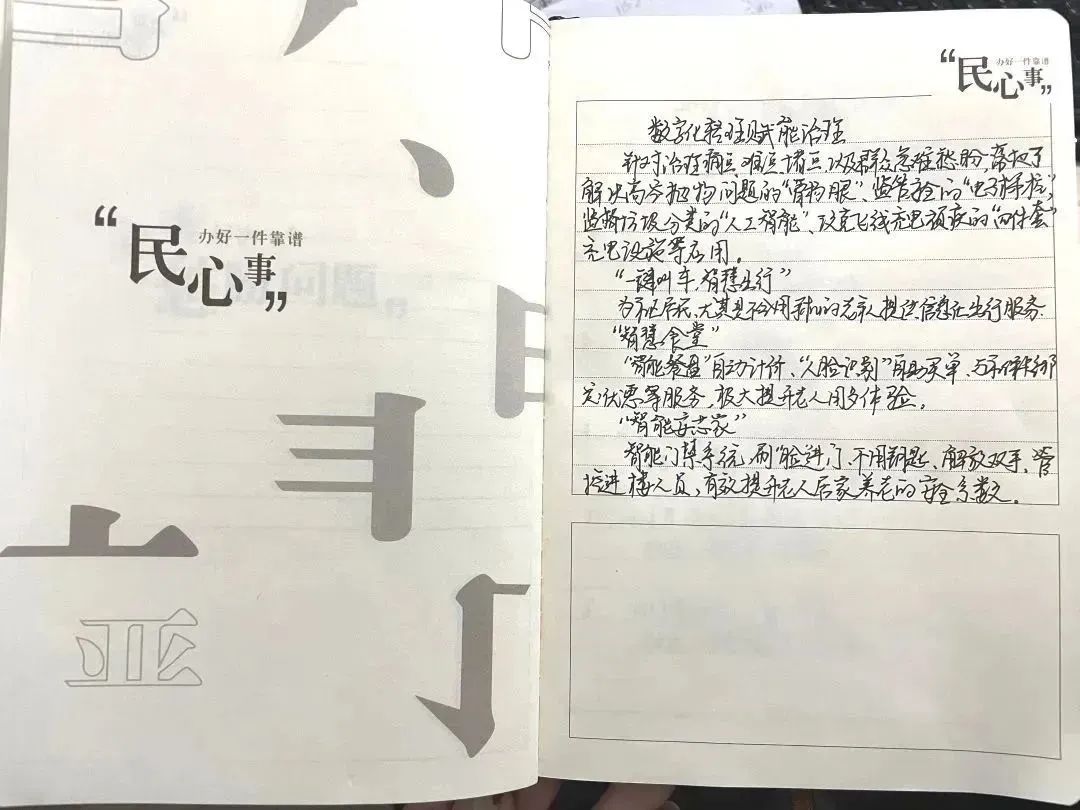 “民心事”
办好一件靠谱
“民心事”
办好一件靠谱
数字化管理赋能治理
针对治理痛点、难点、堵点以及群众急难愁盼,落地了
解决高空抛物问题的“瞭望眼”、监管的“电子桩”,
监督垃圾分类的“人工智能”、攻克飞线充电顽疾的“四件套”
充电设施等应用。
“一键叫车,智慧出行”
为社区居民,尤其是不会用手机的老人提供信息化出行服务.
“智慧食堂”
“智能餐盘”自动计价、“人脸识别”自助买单、与不同绑
定优惠等服务,极大提升老人用餐体验。
“智能家”
智能门禁系统,刷脸进门、不用钥匙、解放双手、管
控进楼人员、有效提升老人居家养老的安全系数。